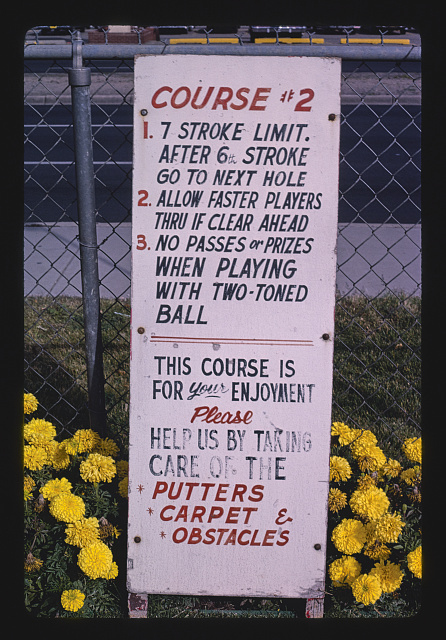 COURSE #2
1. 7 STROKE LIMIT.
AFTER 6th STROKE
GO TO NEXT HOLE
2. ALLOW FASTER PLAYERS
THRU IF CLEAR AHEAD
3. NO PASSES or PRIZES
WHEN PLAYING
WITH TWO-TONED
BALL
THIS COURSE IS
FOR your ENJOYMENT
Please
HELP US BY TAKING
CARE OF THE
* PUTTERS
* CARPET &
* OBSTACLES